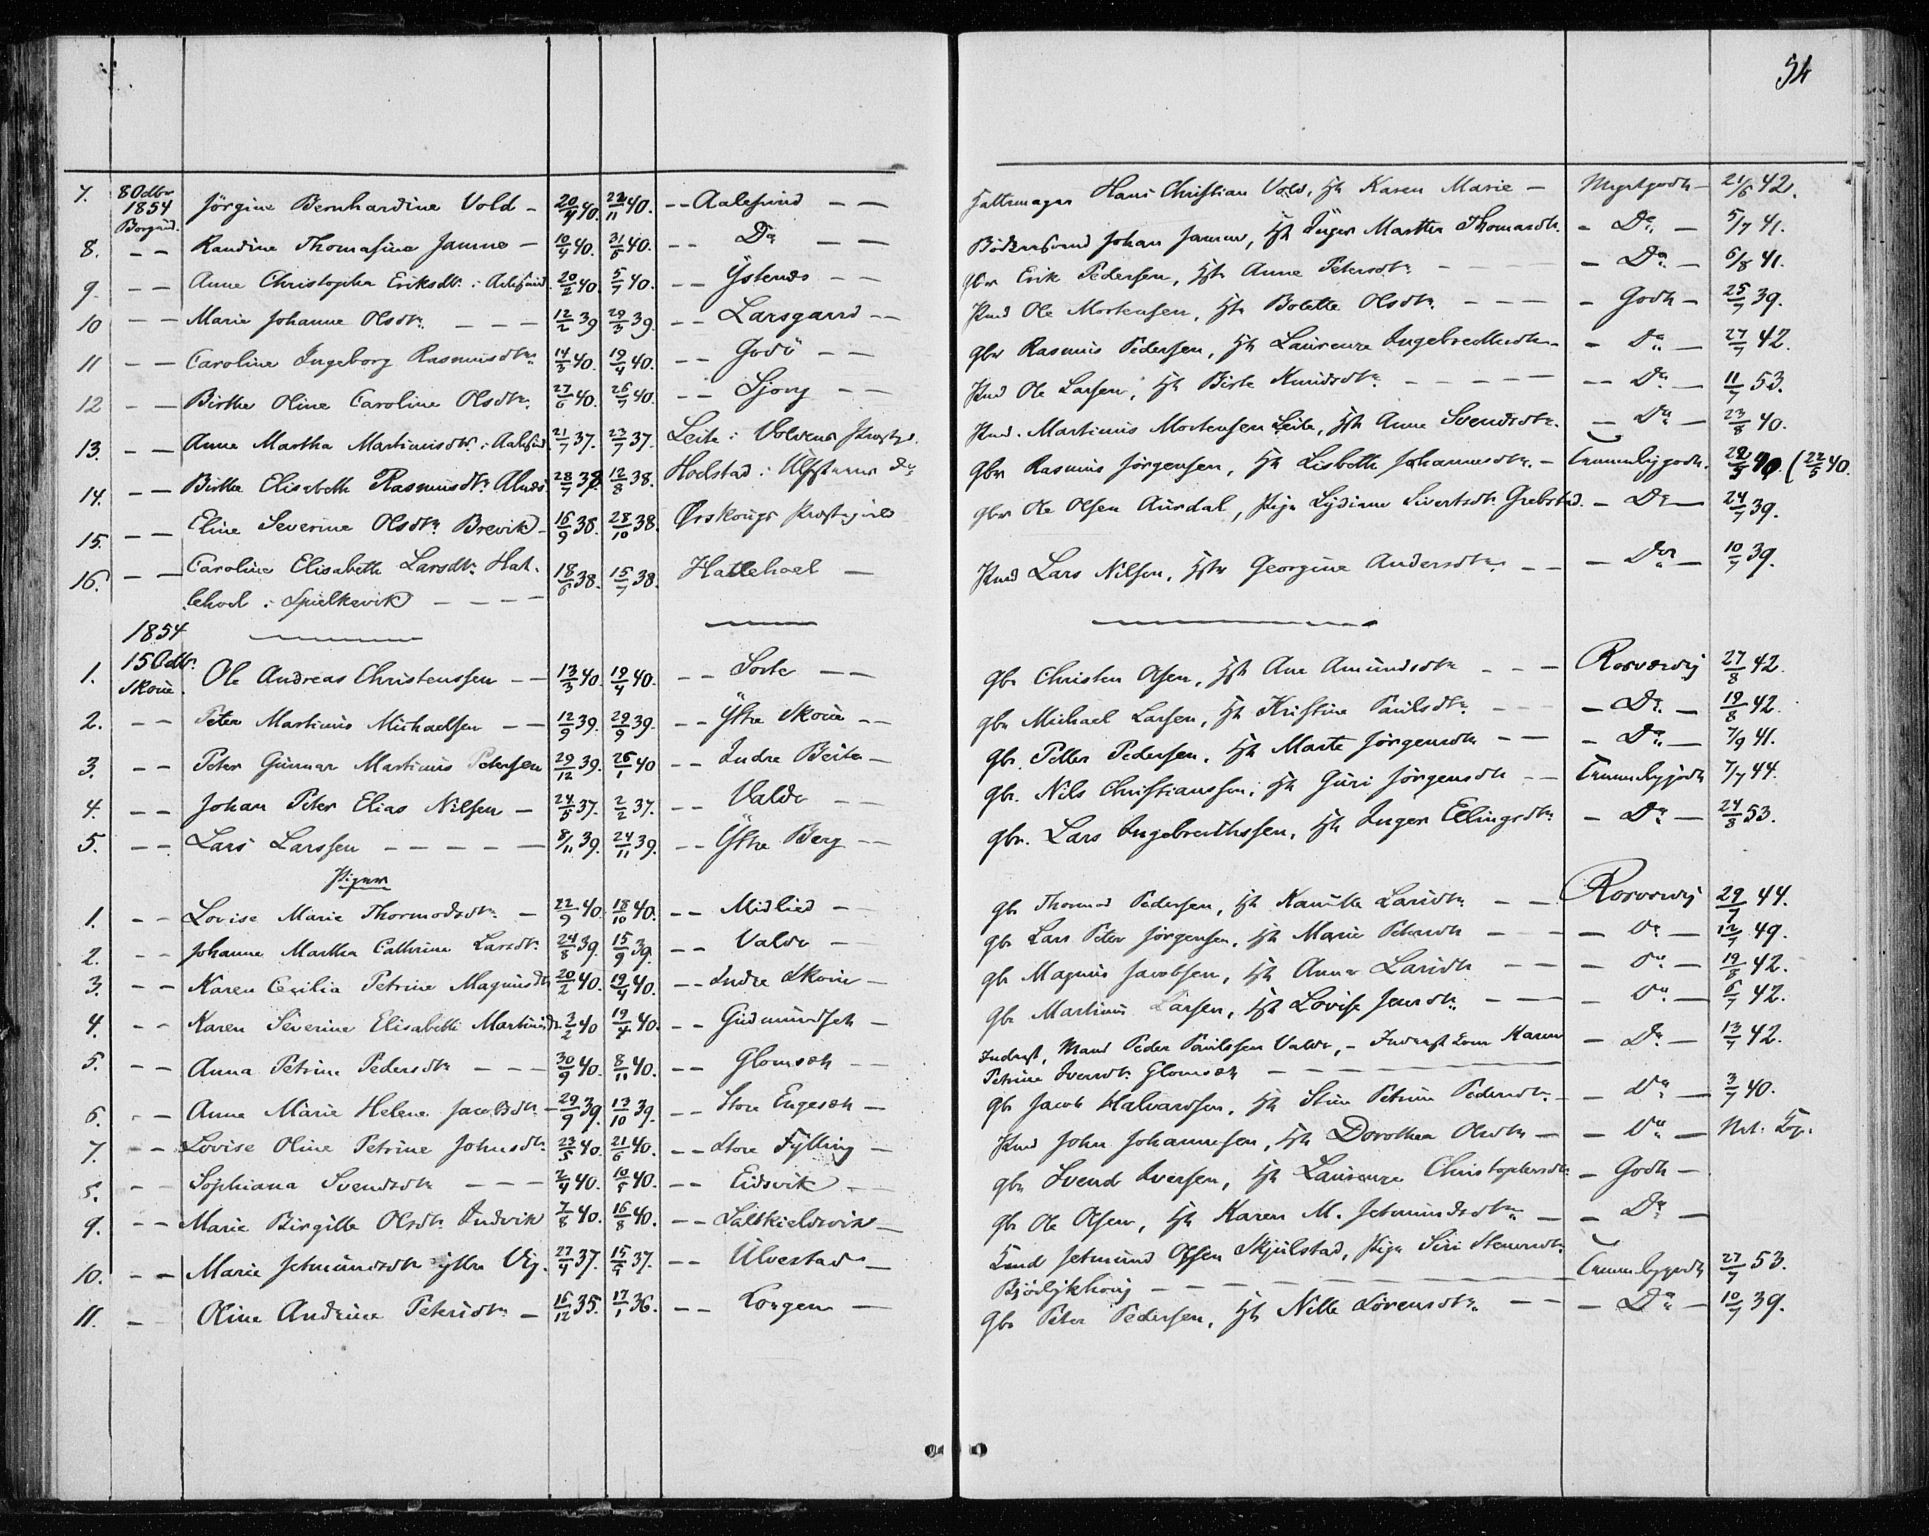 54
7. 8 Octbr 1854 Borgund. Jørgine Bernhardine Vold – 20/4 40. 22/11 40. – – Aalesund – – Hans Christian Vold, Hst Karen Marie – Megetgodt – 21/6 42.
8. – – Randine Thomasine Jamne – 10/4 40. 31/5 40. – – Do – – Johan Jamne, Hst Inger Marthe Thomasdtr. – Do – 5/7 41.
9. – – Anne Christopha Eriksdtr. i Aalesund. 20/2 40. 5/7 40. – – Ystenes – – Gbr Erik Pedersen, Hst Anne Petersdtr. – – – Do – 6/8 41.
10 – – Marie Johanne Olsdtr. – – – 12/2 39 29/3 39. – – Larsgaard – – Hmd Ole Mortensen, Hst Bolette Olsdtr. – – – – Godt – 25/7 39.
11 – – Caroline Ingeborg Rasmusdtr. 14/3 40. 19/4 40. – – Godö – – Gbr Rasmus Pedersen, Hst Laurenze Ingebredtsdtr. – – Do – 27/7 42.
12 – – Birthe Oline Caroline Olsdtr. 27/6 40. 26/7 40. – – Sjong – – Hmd Ole Larsen, Hst Birte Knudsdtr. – – – – – – Do – 11/7 53.
13. – – Anne Martha Martinusdtr. i Aalesund. 21/7 37. 23/7 37. Leite i Voldens Prstgd. Hmd. Martinus Mortensen Leite, Hst Anne Svendsdtr. – Do – 23/8 40.
14. – – Birthe Elisabeth Rasmusdtr. Alnæs 28/7 38 12/8 38. Hodstad i Ulfsteens Do Gbr Rasmus Jørgensen, Hst Lisbeth Johannesdtr. – Temmeliggodt. 22/5 40. (22/5 40.
15. – – Eline Severine Olsdtr. Brevik – 16/9 38. 28/10 38. Ørskougs Prstgd Gbr Ole Olsen Aurdal, Pige Lydiane Sivertsdtr. Grebstad. – Do – 24/7 39.
16. – – Caroline Elisabeth Larsdtr. Hat-
lehoel i Spielkevik – – – – 18/6 38. 15/7 38. Hatlehoel – Hmd Lars Nilsen, Hst Georgine Andersdtr. – – – Do – 10/7 39.
1854
1. 15 Octbr. Skoue. Ole Andreas Christenssen – – 13/3 40. 19/4 40. – – Sorte – – Gbr Christen Olsen, Hst Ane Amundsdtr. – – – Rosværdig 27/8 42.
2. – – Peter Martinus Michaelsen – – 12/9 39. 29/9 39. – – Ystre Skoue – – Gbr Michael Larsen, Hst Kristine Paulsdtr. – – – Do – 19/8 42.
3. – – Peter Gunnar Martinus Petersen 29/12 39. 26/1 40 – – Indre Beite – Gbr. Petter Pedersen, Hst Marte Jørgensdtr – – – Do – 7/9 41.
4. – – Johan Peter Elias Nilsen – 24/5 37. 2/2 37. – – Valde – – Gbr. Nils Christianssen, Hst Guri Jørgensdtr – – Temmeliggodt 7/7 44.
5. – – Lars Larssen – – – – – 8/11 39. 24/11 39. – – Ystre Berg – – Gbr. Lars Ingebrethssen, Hst Inger Ellingsdtr. – Do – 24/8 53.
Piger
1. – – Lovise Marie Thormodsdtr. – 22/9 40. 18/10 40. – – Midlied – Gbr Thormod Pedersen, Hst Larsdtr. – – Rosværdig 29/7 44.
2. – – Johanne Martha Cathrine Larsdtr. 24/8 39. 15/9 39. – – Valde – Gbr Lars Peter Jørgensen, Hst Marie Petersdtr – – – Do – 12/7 49.
3. – – Karen Cecilia Petrine Magnusdtr 20/2 40. 19/4 40. – – Indre Skoue – Gbr Magnus Jacobsen, Hst Anne Larsdtr – – – Do – 19/8 42.
4. – – Karen Severine Elisabeth Martinusdtr 3/2 40 19/4 40. – – Gudmundset – Gbr Martinus Larsen, Hst Lovise Jensdtr. – – – Do – 6/7 42.
5. – – Anna Petrine Pedersdtr – – – 30/9 40. 8/11 40. – – Glomset – – Inderst, Mand Peder Paulssen Valde, – Karen
Petrine Iversdtr. Glomset – – – – – Do – 13/7 42.
6. – – Anne Marie Helene Jacobsdtr. – 29/9 39. 13/10 39. – – Store Engeset – Gbr Jacob Halvardsen, Hst Petrine Pedersdtr. – – Do – 3/7 40.
7. – – Lovise Oline Petrine Johnsdtr. 23/5 40. 21/6 40. – – Store Fylling – Hmd John Johannesen, Hst Dorothea Olsdtr – – Do – Nat. Kop.
8. – – Sophiana Svendsdtr – – – 2/4 40. 10/5 40. – – Eidsvik – – Gbr Svend Iversen, Hst Laurenze Christophersdtr. – Godt –
9. – – Marie Birgitte Olsdtr. Indvik 7/8 40. 16/8 40. – – Saltkieldsvik – Gbr Ole Olsen, Hst Karen M. Jetmundsdtr. – – Do –
10. – – Marie Jetmundsdtr ytre Vig. 27/4 37. 15/4 37. – – Ulvestad – Jetmund Olsen Skjulstad, Pige Siri
– – – – – Temmeliggodt 27/7 53.
11. – – Oline Andrine Petersdtr. – 16/12 35. 17/1 36. – – Longen – Gbr Peter Pedersen, Hst Nille Lorensdtr. – – – Do – 10/7 39.